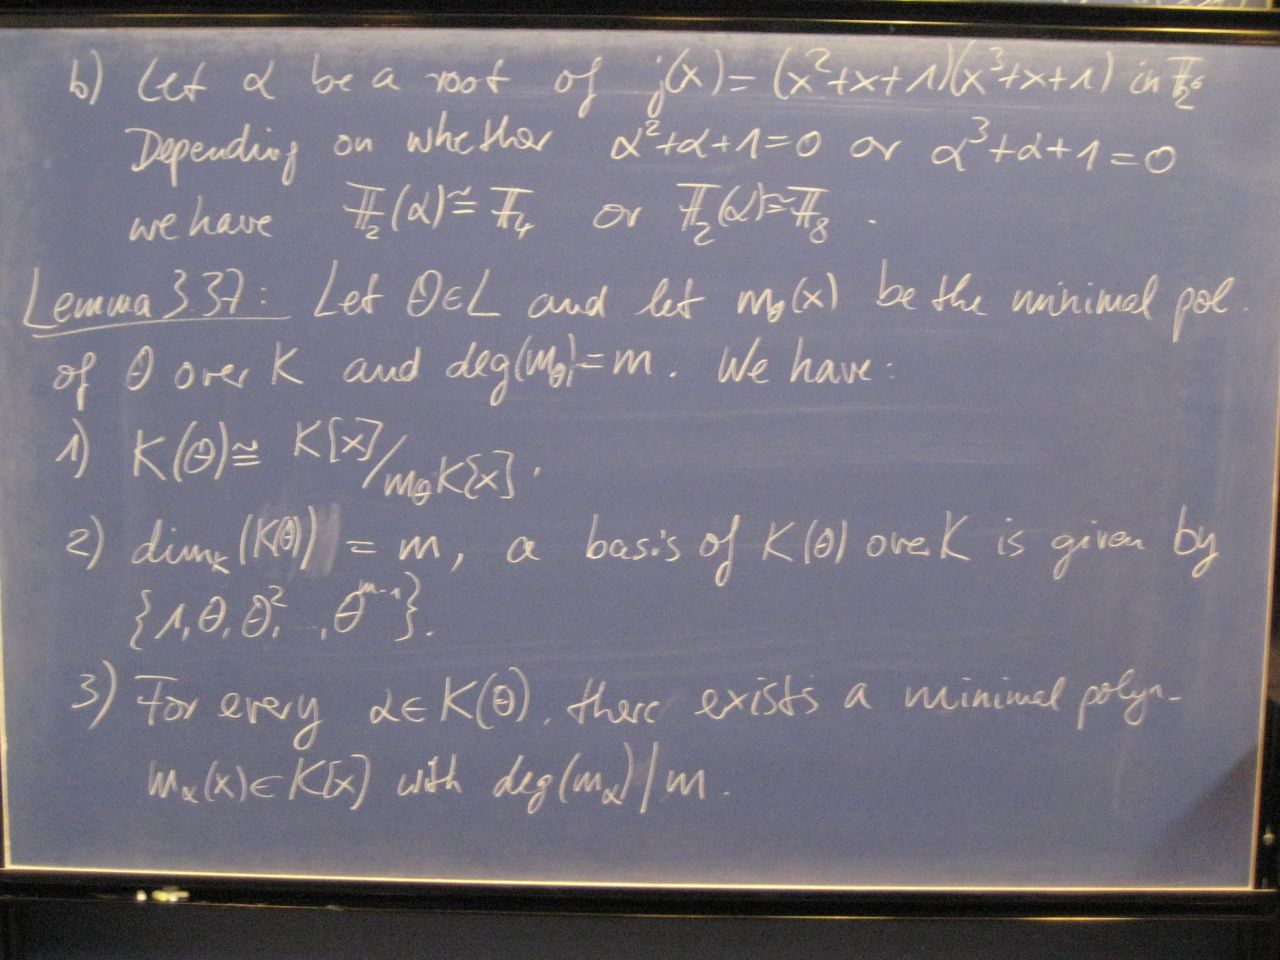 b) Let α be a root of j(x) = (x²+x+1)(x³+x+1) in 𝔽₂⁶
Depending on whether α²+α+1=0 or α³+α+1=0
we have 𝔽₂(α)≅𝔽₄ or 𝔽₂(α)≅𝔽₈ .
Lemma 3.37: Let θ∈L and let m_θ(x) be the minimal pol.
of θ over K and deg(m_θ)=m. We have:
1) K(θ)≅ K[x]/m_θK[x] .
2) dim_K(K(θ)) = m, a basis of K(θ) over K is given by
{1,θ,θ²,..,θ^{m-1}}.
3) For every α∈K(θ), there exists a minimal polyn-
m_α(x)∈K[x] with deg(m_α)|m.